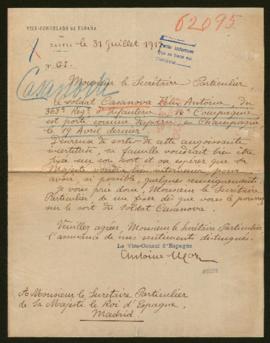 VICE-CONSULADO DE ESPAÑA
62095
BASTIA le 31 Juillet 191
Casanova
Monsieur le Secrétaire Particulier,
Le soldat Casanova Félix Antoine, du
363e Regt d'Infanterie, Compagnie
est porté comme disparu en Champagne
le 19 Avril dernier.
Désireux de sortir de cette angoissante
incertitude, sa famille voudrait bien être
fixée sur son sort et ose espérer que Sa
Majesté voudra bien intervenir pour
avoir, si possible, quelques renseignements.
Je vous prie donc, Monsieur le Secrétaire
Particulier, de me dire que vous le pourrez
sur le sort du soldat Casanova.
Veuillez agréer, Monsieur le Secrétaire Particulier,
l'assurance de mes sentiments distingués.
Le Vice-Consul d'Espagne
Antoine
A Monsieur le Secrétaire Particulier
de Sa Majesté le Roi d'Espagne,
Madrid